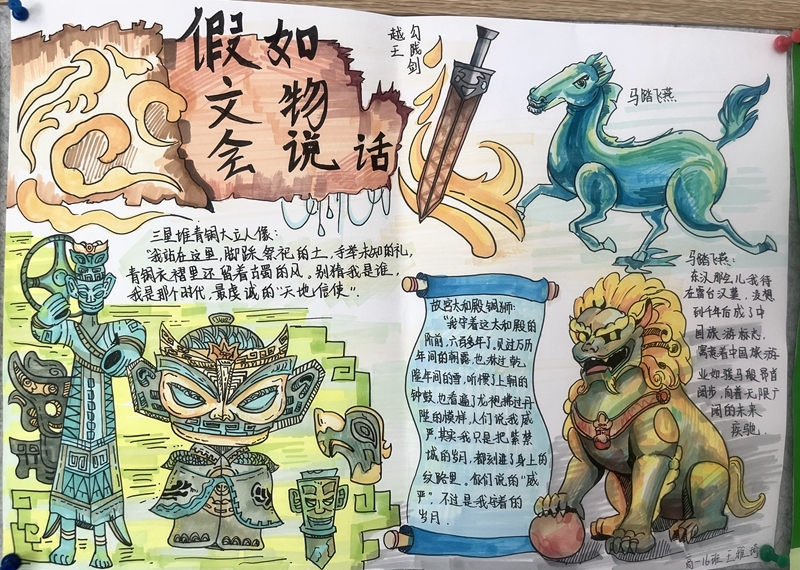 假如
文物
会说话
越王
勾践剑
马踏飞燕
三星堆青铜大立人像:
“我站在这里,脚踩祭祀的土,手举未知的礼,
青铜衣褶里还留着古蜀的风。别猜我是谁,
我是那个时代,最虔诚的“天地信使”.
故宫太和殿铜狮:
“我守着这太和殿的
阶前,六百多年了.见过万历
年间的朝霞,也淋过乾
隆年间的雪,听惯了上朝的
钟鼓,也看遍了龙袍拂过丹
陛的模样,人们说我威
严,其实我只是把紫禁
城的岁月,都刻进了身上的
纹路里.你们说的“威
严”.不过是我守着的
岁月.
马踏飞燕:
东汉那会儿我待
在雷台汉墓,没想
到千年后成了中
国旅游标志.
寓意着中国旅游
业如骏马般昂首
阔步,向着无限广
阔的未来
疾驰.
高一16班 王雅